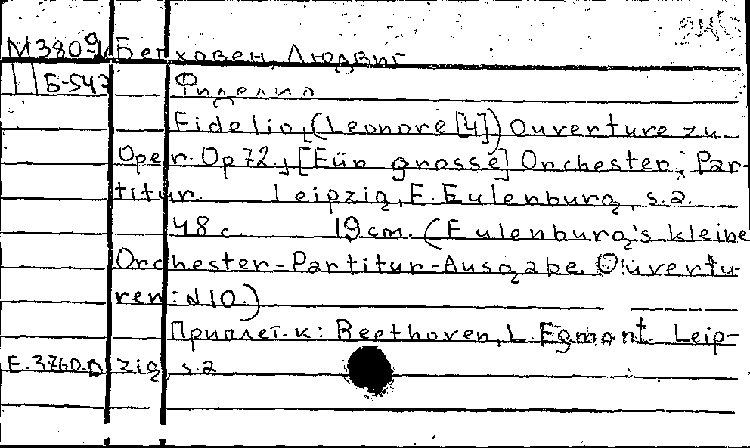 М3809 Бетховен, Людвиг
Б-547 Фиделио
Fidelio, (Leonore [4]) Ouverture zu
Oper. Op 72., [Für grosse] Orchester, Par-
titur. Leipzig, E. Eulenburg, s.a.
48 с. 19 cm. (Eulenburg's kleine
Orchester-Partitur-Ausgabe. Ouvertu-
ren: N 10.)
Приплет. к: Beethoven, L. Egmont. Leip-
E. 3760.D zig, s.a.